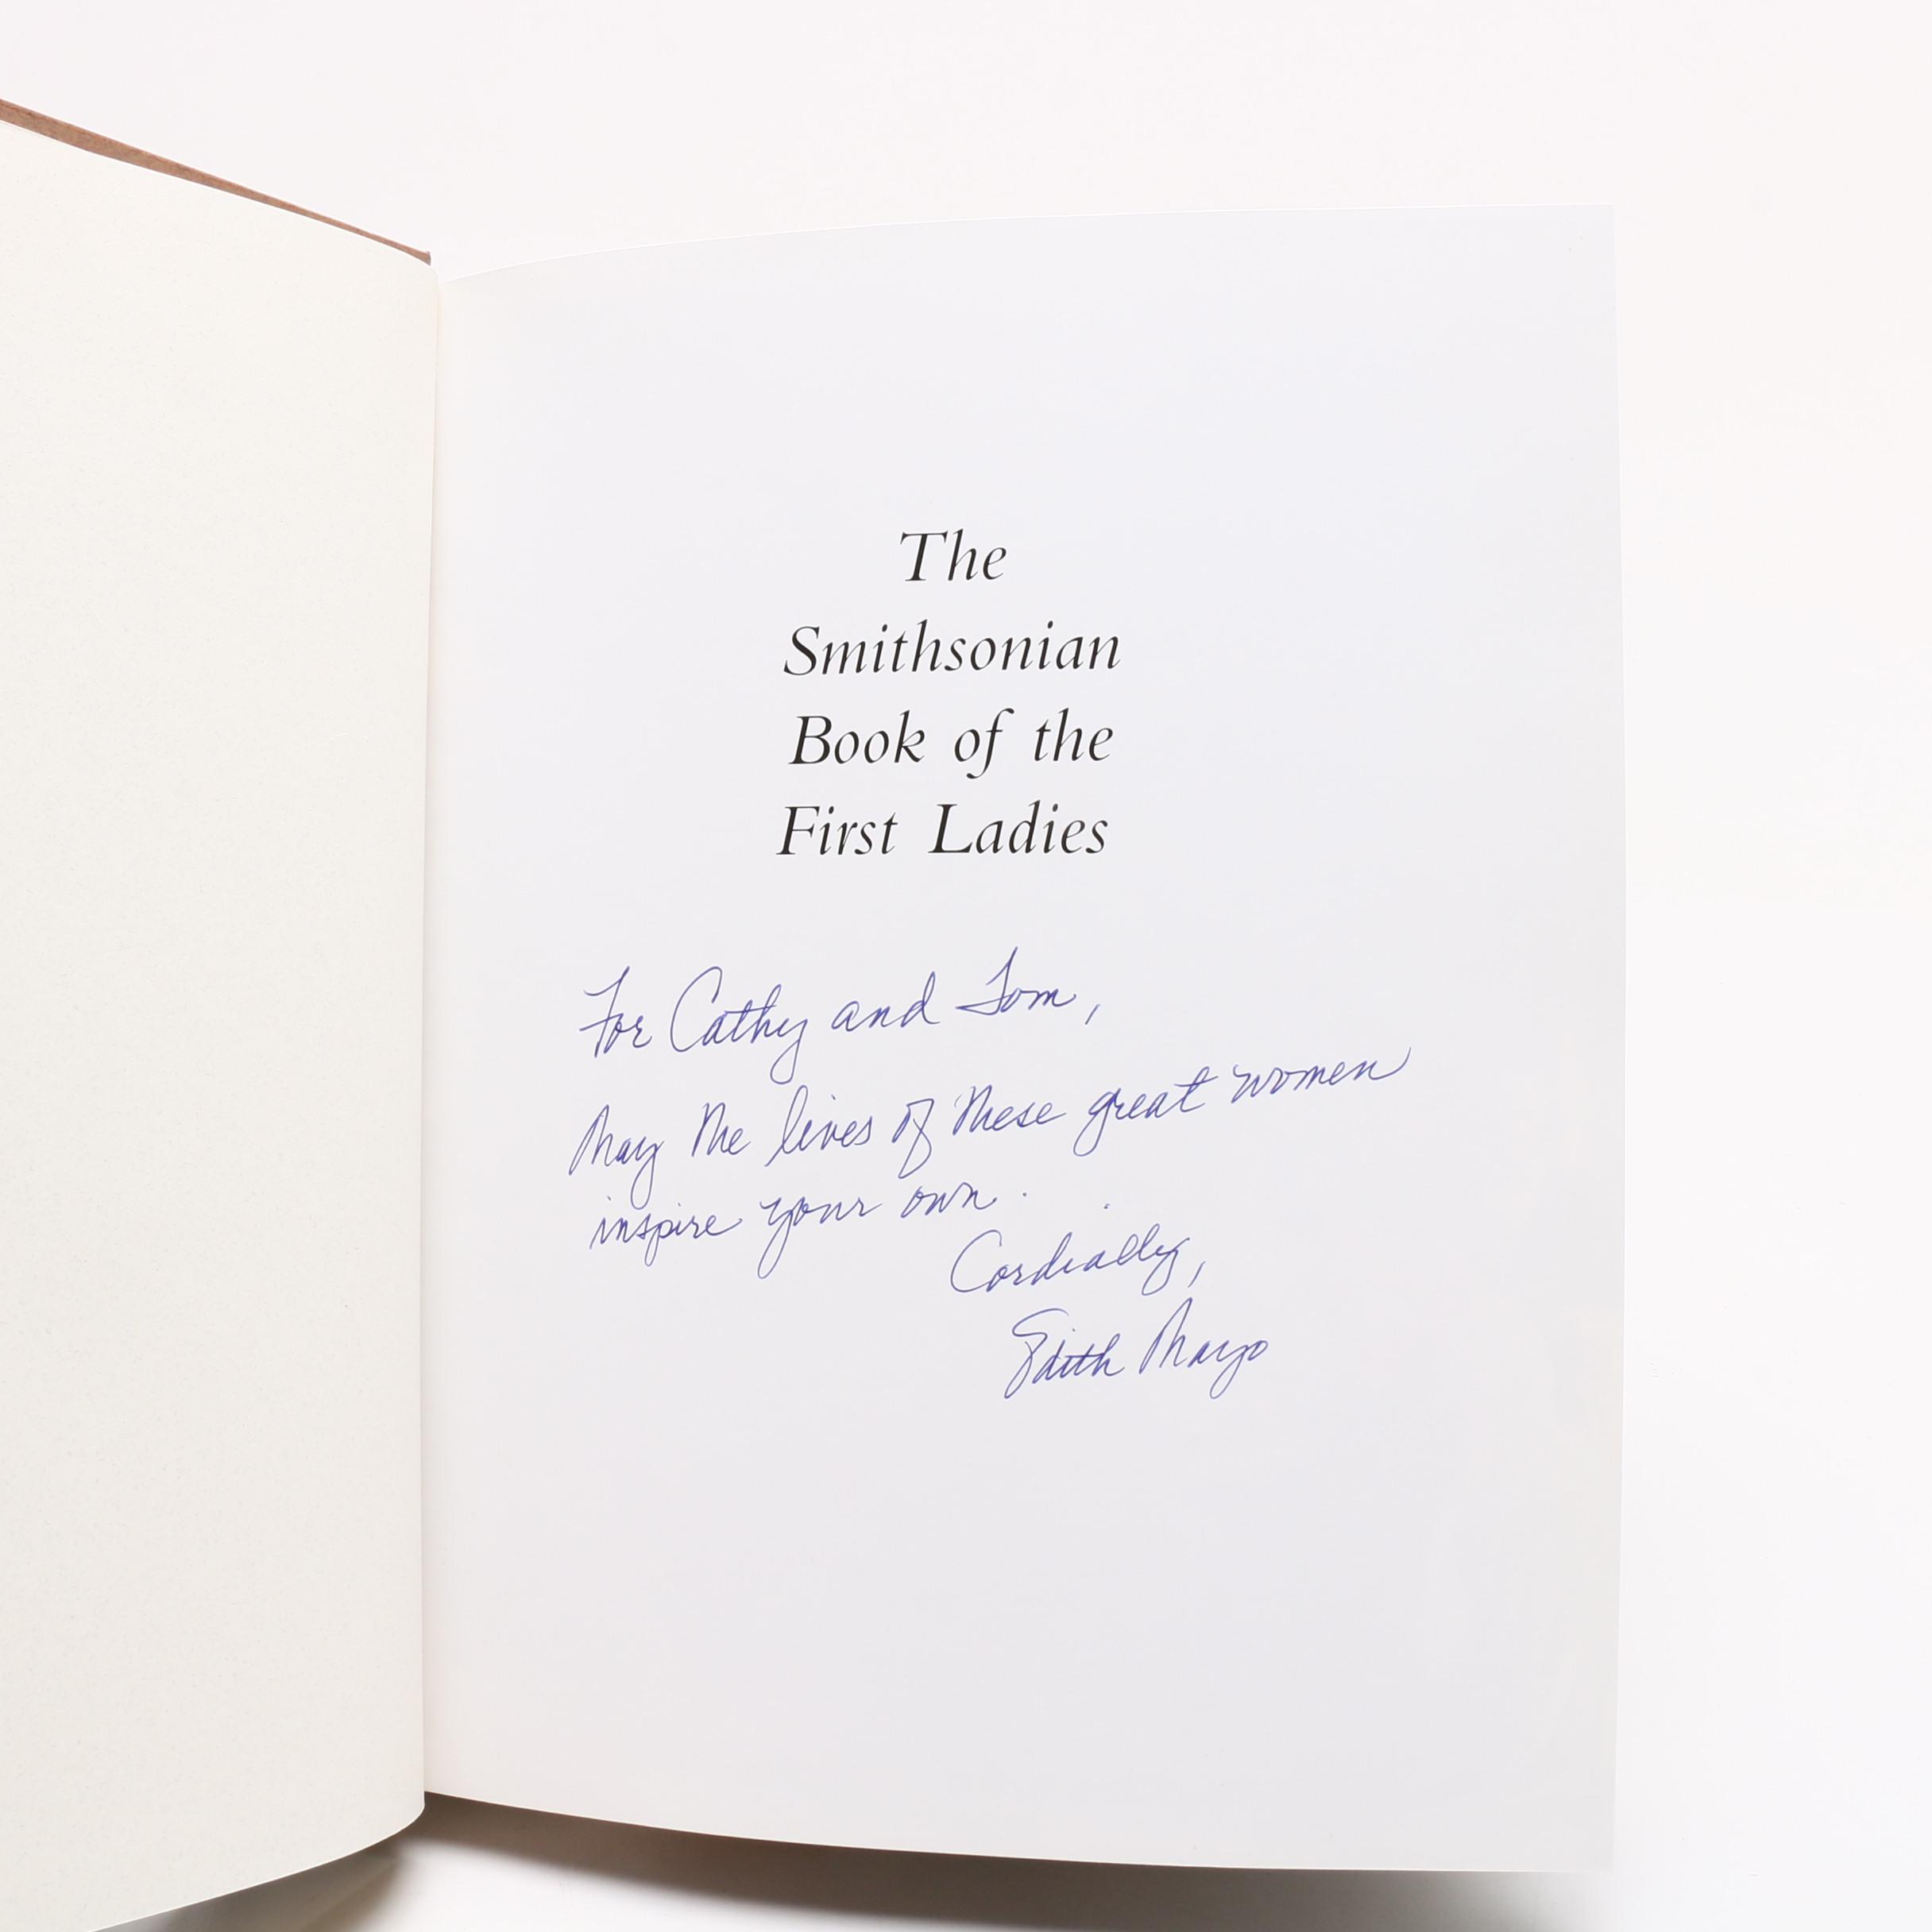 The
Smithsonian
Book of the
First Ladies
For Cathy and Tom,
May the lives of these great women
inspire your own.
Cordially,
Edith Mayo